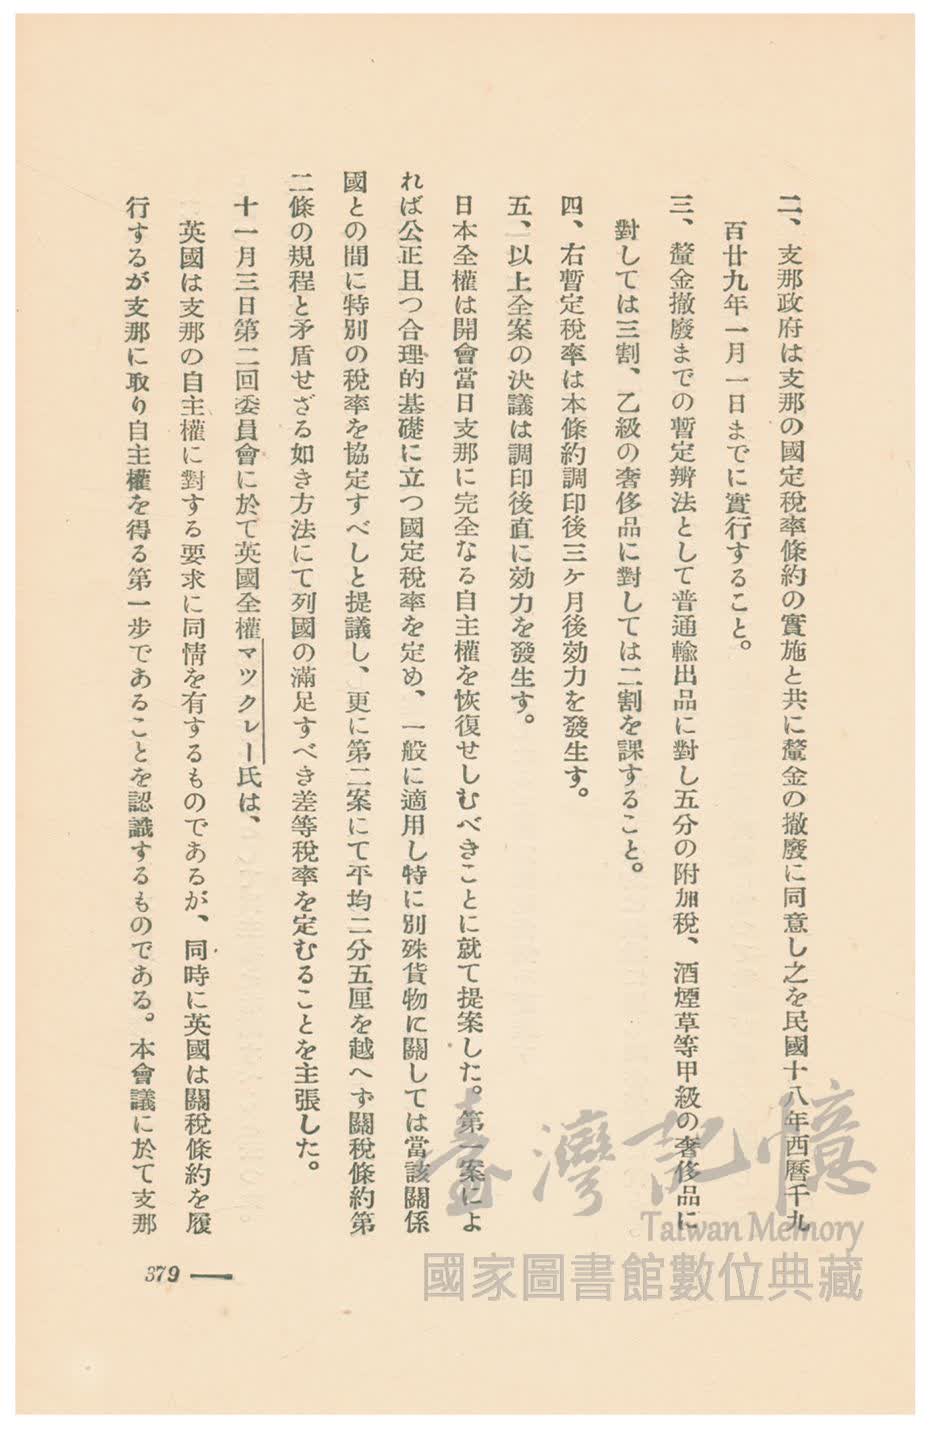 二、支那政府は支那の國定税率條約の實施と共に釐金の撤廢に同意し之を民國十八年西曆千九
百廿九年一月一日までに實行すること。
三、釐金撤廢までの暫定辨法として普通輸出品に對し五分の附加税、酒煙草等甲級の奢侈品に
對しては三割、乙級の奢侈品に對しては二割を課すること。
四、右暫定税率は本條約調印後三ケ月後効力を發生す。
五、以上全案の決議は調印後直に効力を發生す。
日本全權は開會當日支那に完全なる自主權を恢復せしむべきことに就て提案した。第一案によ
れば公正且つ合理的基礎に立つ國定税率を定め、一般に適用し特に別殊貨物に關しては當該關係
國との間に特別の税率を協定すべしと提議し、更に第二案にて平均二分五厘を越へず關税條約第
二條の規程と矛盾せざる如き方法にて列國の滿足すべき差等税率を定むることを主張した。
十一月三日第二回委員會に於て英國全權マツクレー氏は、
英國は支那の自主權に對する要求に同情を有するものであるが、同時に英國は關税條約を履
行するが支那に取り自主權を得る第一步であることを認識するものである。本會議に於て支那
379
臺灣記憶
Taiwan Memory
國家圖書館數位典藏